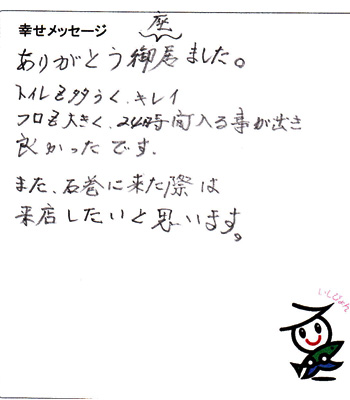 幸せメッセージ
座
ありがとう御居ました。
トイレも多うく、キレイ
フロも大きく、24時間入る事が出き
良かったです.
また、石巻に来た際は
来店したいと思います。
いしぴょん